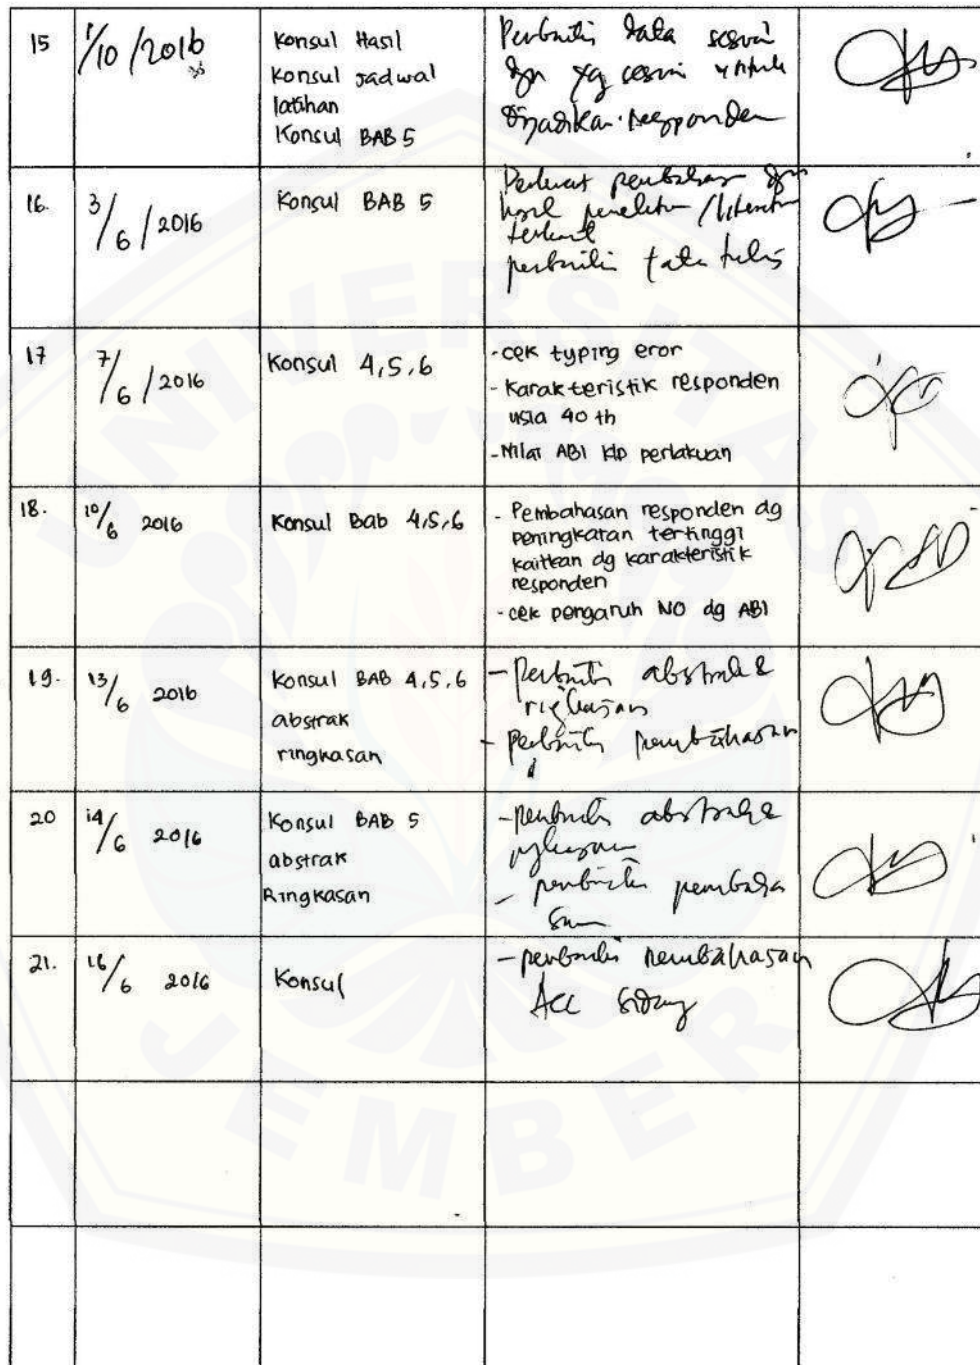 15
1/10/2016
Konsul Hasil
Konsul jadwal
latihan
Konsul BAB 5
Perbaiki data sesuai
dgn yg sesuai untuk
dijadikan responden
16.
3/6/2016
Konsul BAB 5
Perkuat pembahasan dgn
hasil penelitian/literatur
terkait
perbaiki tata tulis
17
7/6/2016
Konsul 4,5,6
-cek typing eror
-Karakteristik responden
usia 40 th
-Nilai ABI klp perlakuan
18.
10/6 2016
Konsul Bab 4,5,6
- Pembahasan responden dg
peningkatan tertinggi
kaitkan dg karakteristik
responden
-cek pengaruh NO dg ABI
19.
13/6 2016
Konsul BAB 4,5,6
abstrak
ringkasan
- Perbaiki abstrak &
ringkasan
- perbaiki pembahasan
20
14/6 2016
Konsul BAB 5
abstrak
Ringkasan
-perbaiki abstrak &
ringkasan
- perbaiki pembaha
san
21.
16/6 2016
Konsul
-perbaiki pembahasan
Acc sidang
UNIVERSITAS
JEMBER